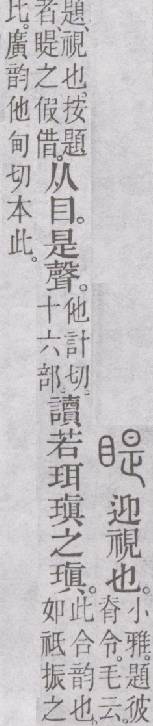 睼 迎視也。小雅。題彼
脊令。毛云。
題、視也。按題
者、睼之假借。
从目。是聲。他計切。
十六部。
讀若珥瑱之瑱。此合韵也。
如祗振之
比。廣韵他甸切本此。